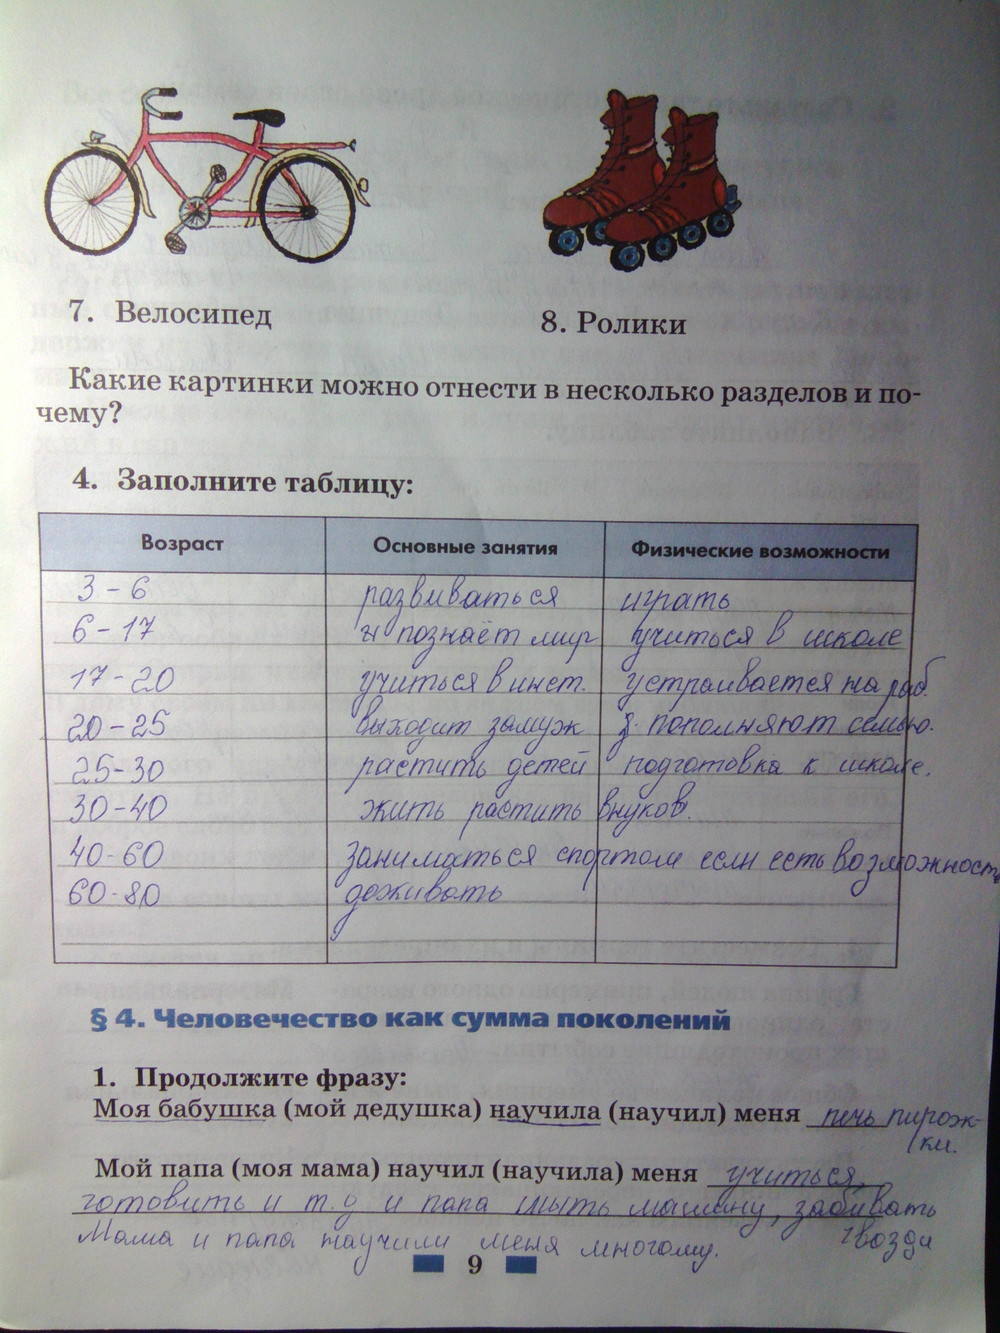 7. Велосипед
8. Ролики
Какие картинки можно отнести в несколько разделов и по-
чему?
4. Заполните таблицу:
Возраст Основные занятия Физические возможности
3-6 развиваться играть
6-17 и познаёт мир учиться в школе
17-20 учиться в инст. устраивается на раб.
20-25 выходит замуж пополняют семью.
25-30 растить детей подготовка к школе.
30-40 жить растить внуков.
40-60 заниматься спортом если есть возможность
60-80 доживать
§ 4. Человечество как сумма поколений
1. Продолжите фразу:
Моя бабушка (мой дедушка) научила (научил) меня печь пирож-
ки.
Мой папа (моя мама) научил (научила) меня учиться,
готовить и т.д и папа мыть машину, забивать
гвозди
Мама и папа научили меня многому.
9